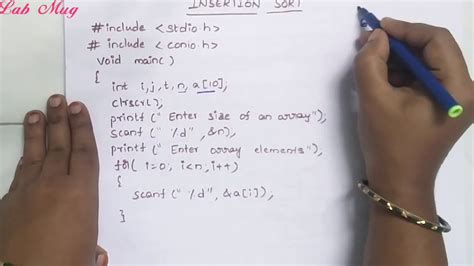 Lab Mug
INSERTION SORT
#include <stdio.h>
# include <conio.h>
void main()
{
int i,j,t,n,a[10];
clrscr();
printf(" Enter size of an array");
scanf(" %d", &n);
printf(" Enter array elements");
for( i=0; i<n; i++)
{
scanf(" %d", &a[i]);
}